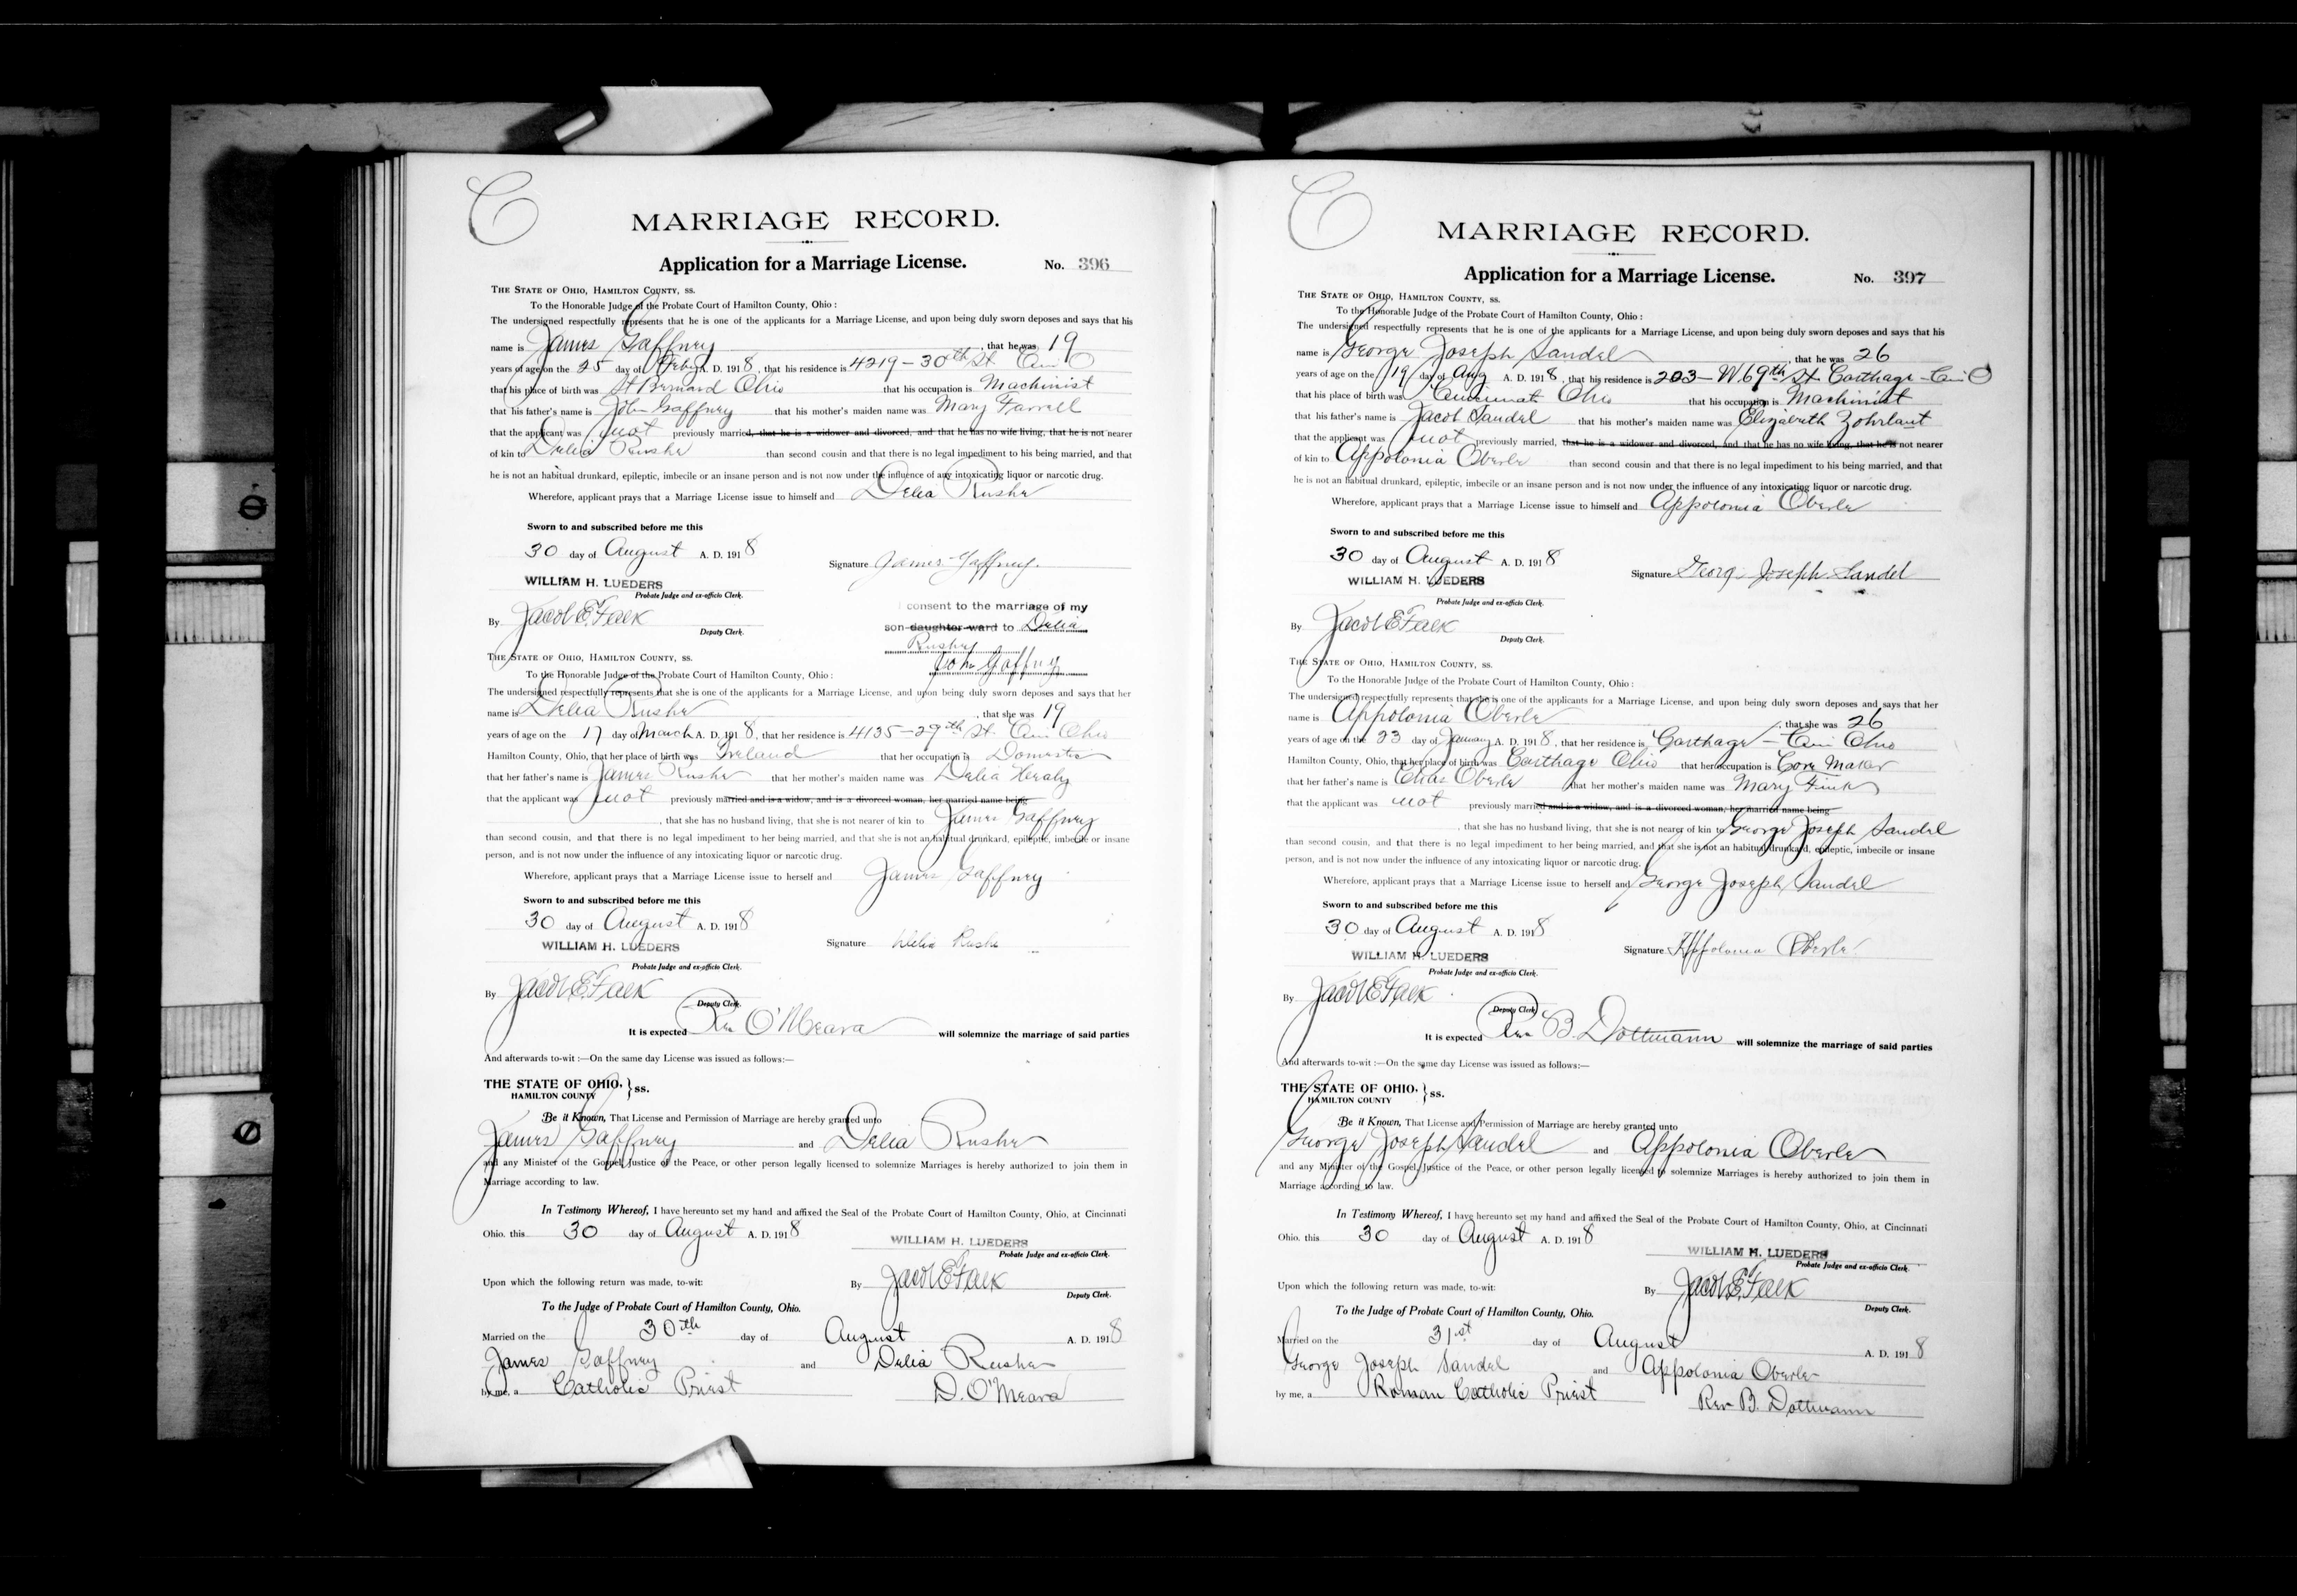 C
MARRIAGE RECORD.
Application for a Marriage License. No. 396
THE STATE OF OHIO, HAMILTON COUNTY, ss.
To the Honorable Judge of the Probate Court of Hamilton County, Ohio :
The undersigned respectfully represents that he is one of the applicants for a Marriage License, and upon being duly sworn deposes and says that his
name is James Gaffney , that he was 19
years of age on the 25 day of Feby A. D. 1918, that his residence is 4219-30th St Cin O
that his place of birth was St Bernard Ohio that his occupation is Machinist
that his father's name is John Gaffney that his mother's maiden name was Mary Farrell
that the applicant was not previously married, that he is a widower and divorced, and that he has no wife living, that he is not nearer
of kin to Delia Rushe than second cousin and that there is no legal impediment to his being married, and that
he is not an habitual drunkard, epileptic, imbecile or an insane person and is not now under the influence of any intoxicating liquor or narcotic drug.
Wherefore, applicant prays that a Marriage License issue to himself and Delia Rushe
Sworn to and subscribed before me this
30 day of August A. D. 1918
Signature James Gaffney.
WILLIAM H. LUEDERS
Probate Judge and ex-officio Clerk.
By Jacob E. Falk
Deputy Clerk.
I consent to the marriage of my
son daughter ward to Delia
Rushe
John Gaffney
THE STATE OF OHIO, HAMILTON COUNTY, ss.
To the Honorable Judge of the Probate Court of Hamilton County, Ohio :
The undersigned respectfully represents that she is one of the applicants for a Marriage License, and upon being duly sworn deposes and says that her
name is Delia Rushe , that she was 19
years of age on the 17 day of March A. D. 1918, that her residence is 4135-29th St. Cin Ohio
Hamilton County, Ohio, that her place of birth was Ireland that her occupation is Domestic
that her father's name is James Rushe that her mother's maiden name was Delia Healy
that the applicant was not previously married and is a widow, and is a divorced woman, her married name being
, that she has no husband living, that she is not nearer of kin to James Gaffney
than second cousin, and that there is no legal impediment to her being married, and that she is not an habitual drunkard, epileptic, imbecile or insane
person, and is not now under the influence of any intoxicating liquor or narcotic drug.
Wherefore, applicant prays that a Marriage License issue to herself and James Gaffney
Sworn to and subscribed before me this
30 day of August A. D. 1918
WILLIAM H. LUEDERS
Signature Delia Rushe
Probate Judge and ex-officio Clerk.
By Jacob E. Falk
Deputy Clerk.
It is expected Rev O'Meara will solemnize the marriage of said parties
And afterwards to-wit :—On the same day License was issued as follows:—
THE STATE OF OHIO, } ss.
HAMILTON COUNTY
Be it Known, That License and Permission of Marriage are hereby granted unto
James Gaffney and Delia Rushe
and any Minister of the Gospel, Justice of the Peace, or other person legally licensed to solemnize Marriages is hereby authorized to join them in
Marriage according to law.
In Testimony Whereof, I have hereunto set my hand and affixed the Seal of the Probate Court of Hamilton County, Ohio, at Cincinnati
Ohio, this 30 day of August A. D. 1918
WILLIAM H. LUEDERS
Probate Judge and ex-officio Clerk.
Upon which the following return was made, to-wit: By Jacob E. Falk
Deputy Clerk.
To the Judge of Probate Court of Hamilton County, Ohio.
Married on the 30th day of August A. D. 1918
James Gaffney and Delia Rushe
by me, a Catholic Priest D. O'Meara
C
MARRIAGE RECORD.
Application for a Marriage License. No. 397
THE STATE OF OHIO, HAMILTON COUNTY, ss.
To the Honorable Judge of the Probate Court of Hamilton County, Ohio :
The undersigned respectfully represents that he is one of the applicants for a Marriage License, and upon being duly sworn deposes and says that his
name is George Joseph Sandel , that he was 26
years of age on the 19 day of Aug A. D. 1918, that his residence is 203-W. 69th St Carthage-Cin O
that his place of birth was Cincinnati Ohio that his occupation is Machinist
that his father's name is Jacob Sandel that his mother's maiden name was Elizabeth Zohrlaut
that the applicant was not previously married, that he is a widower and divorced, and that he has no wife living, that he is not nearer
of kin to Appolonia Oberle than second cousin and that there is no legal impediment to his being married, and that
he is not an habitual drunkard, epileptic, imbecile or an insane person and is not now under the influence of any intoxicating liquor or narcotic drug.
Wherefore, applicant prays that a Marriage License issue to himself and Appolonia Oberle
Sworn to and subscribed before me this
30 day of August A. D. 1918
Signature George Joseph Sandel
WILLIAM H. LUEDERS
Probate Judge and ex-officio Clerk.
By Jacob E. Falk
Deputy Clerk.
THE STATE OF OHIO, HAMILTON COUNTY, ss.
To the Honorable Judge of the Probate Court of Hamilton County, Ohio :
The undersigned respectfully represents that she is one of the applicants for a Marriage License, and upon being duly sworn deposes and says that her
name is Appolonia Oberle , that she was 26
years of age on the 23 day of January A. D. 1918, that her residence is Carthage - Cin Ohio
Hamilton County, Ohio, that her place of birth was Carthage Ohio that her occupation is Core Maker
that her father's name is Chas Oberle that her mother's maiden name was Mary Fink
that the applicant was not previously married and is a widow, and is a divorced woman, her married name being
, that she has no husband living, that she is not nearer of kin to George Joseph Sandel
than second cousin, and that there is no legal impediment to her being married, and that she is not an habitual drunkard, epileptic, imbecile or insane
person, and is not now under the influence of any intoxicating liquor or narcotic drug.
Wherefore, applicant prays that a Marriage License issue to herself and George Joseph Sandel
Sworn to and subscribed before me this
30 day of August A. D. 1918
Signature Appolonia Oberle
WILLIAM H. LUEDERS
Probate Judge and ex-officio Clerk.
By Jacob E. Falk
Deputy Clerk
It is expected Rev B. Dottmann will solemnize the marriage of said parties
And afterwards to-wit :—On the same day License was issued as follows:—
THE STATE OF OHIO, } ss.
HAMILTON COUNTY
Be it Known, That License and Permission of Marriage are hereby granted unto
George Joseph Sandel and Appolonia Oberle
and any Minister of the Gospel, Justice of the Peace, or other person legally licensed to solemnize Marriages is hereby authorized to join them in
Marriage according to law.
In Testimony Whereof, I have hereunto set my hand and affixed the Seal of the Probate Court of Hamilton County, Ohio, at Cincinnati
Ohio, this 30 day of August A. D. 1918
WILLIAM H. LUEDERS
Probate Judge and ex-officio Clerk.
Upon which the following return was made, to-wit: By Jacob E. Falk
Deputy Clerk.
To the Judge of Probate Court of Hamilton County, Ohio.
Married on the 31st day of August A. D. 1918
George Joseph Sandel and Appolonia Oberle
by me, a Roman Catholic Priest Rev B. Dottmann